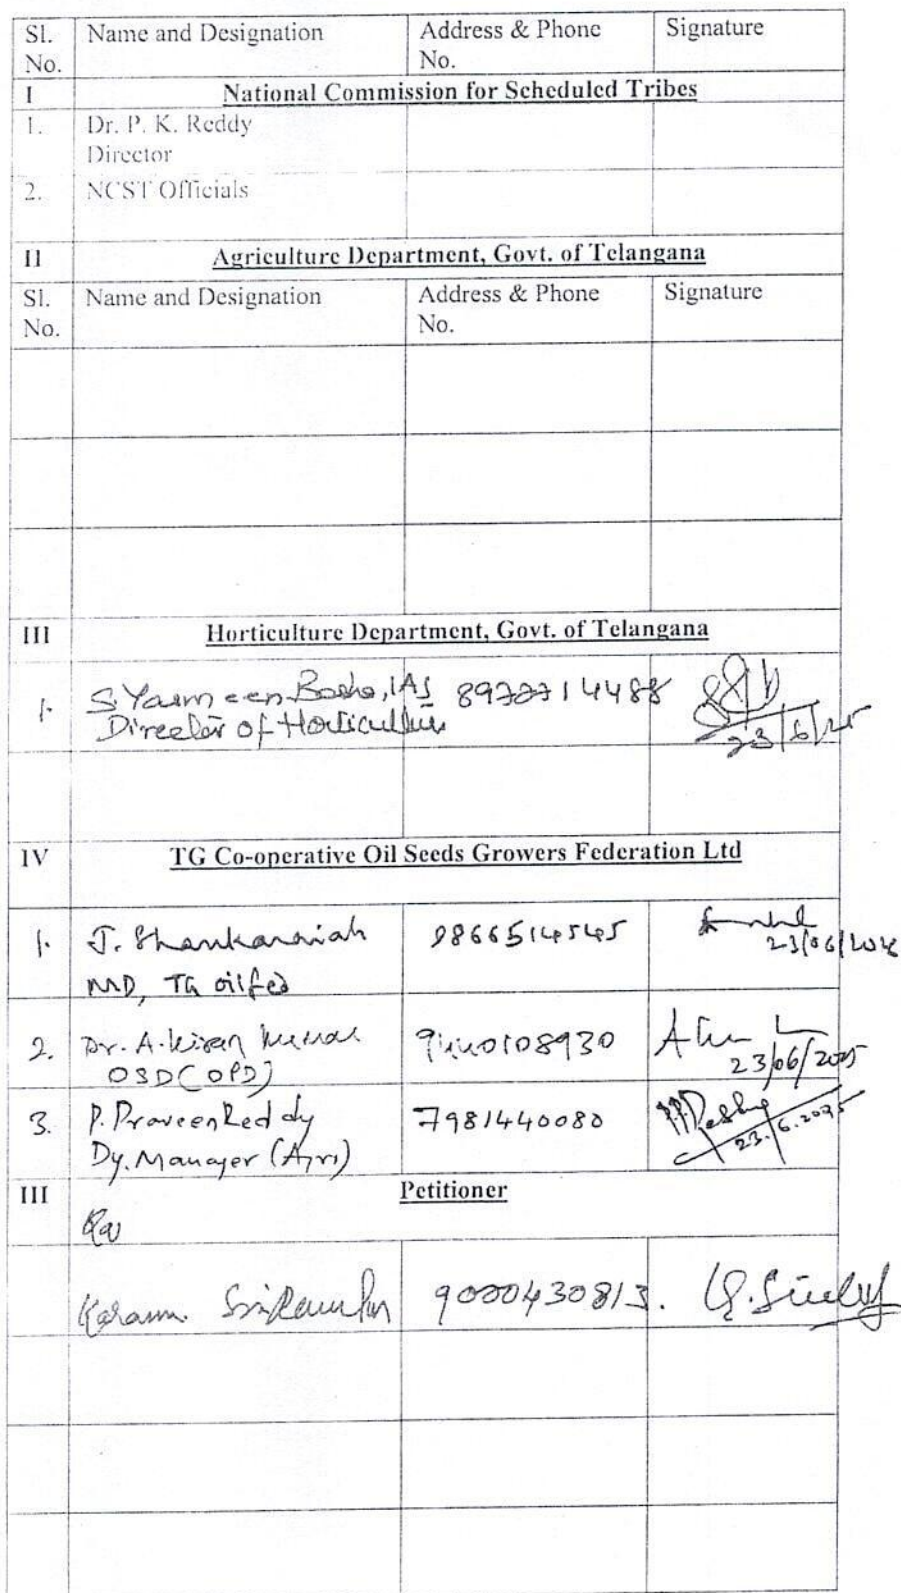 Sl. Name and Designation Address & Phone Signature
No. No.
I National Commission for Scheduled Tribes
1. Dr. P. K. Reddy
Director
2. NCST Officials
II Agriculture Department, Govt. of Telangana
Sl. Name and Designation Address & Phone Signature
No. No.
III Horticulture Department, Govt. of Telangana
1. S. Yasmeen Basha, IAS 8977714488
Director of Horticulture 23/6/25
IV TG Co-operative Oil Seeds Growers Federation Ltd
1. J. Shankaraiah 9866514545
23/06/2025
MD, TG oilfed
2. Dr. A. Kiran Kumar
OSD (OPD) 23/06/2025
3. P. Praveen Reddy 7981440080
Dy. Manager (Agri) 23.6.2025
III Petitioner
Karam 9000430813.